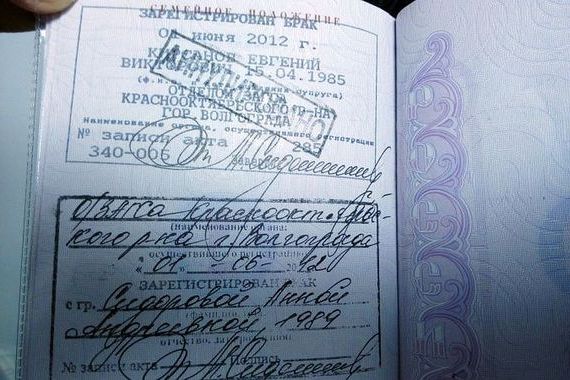 СЕМЕЙНОЕ ПОЛОЖЕНИЕ
ЗАРЕГИСТРИРОВАН БРАК
01 июня 2012 г.
ЕВГЕНИЙ
ВИКТОРОВИЧ 15.04.1985
ОТДЕЛОМ ЗАГС
КРАСНООКТЯБРЬСКОГО Р-НА
ГОР. ВОЛГОГРАДА
наименование органа, осуществившего регистрацию
№ записи акта 285
340-006 Заверил
О/ЗАГСа Краснооктябрь-
ского р-на г. Волгограда
(наименование органа
осуществившего регистрацию
"01" 06 2012
ЗАРЕГИСТРИРОВАН БРАК
с гр. Сидоровой Анной
Андреевной, 1989
отчество, дата рождения
№ записи акта Подпись